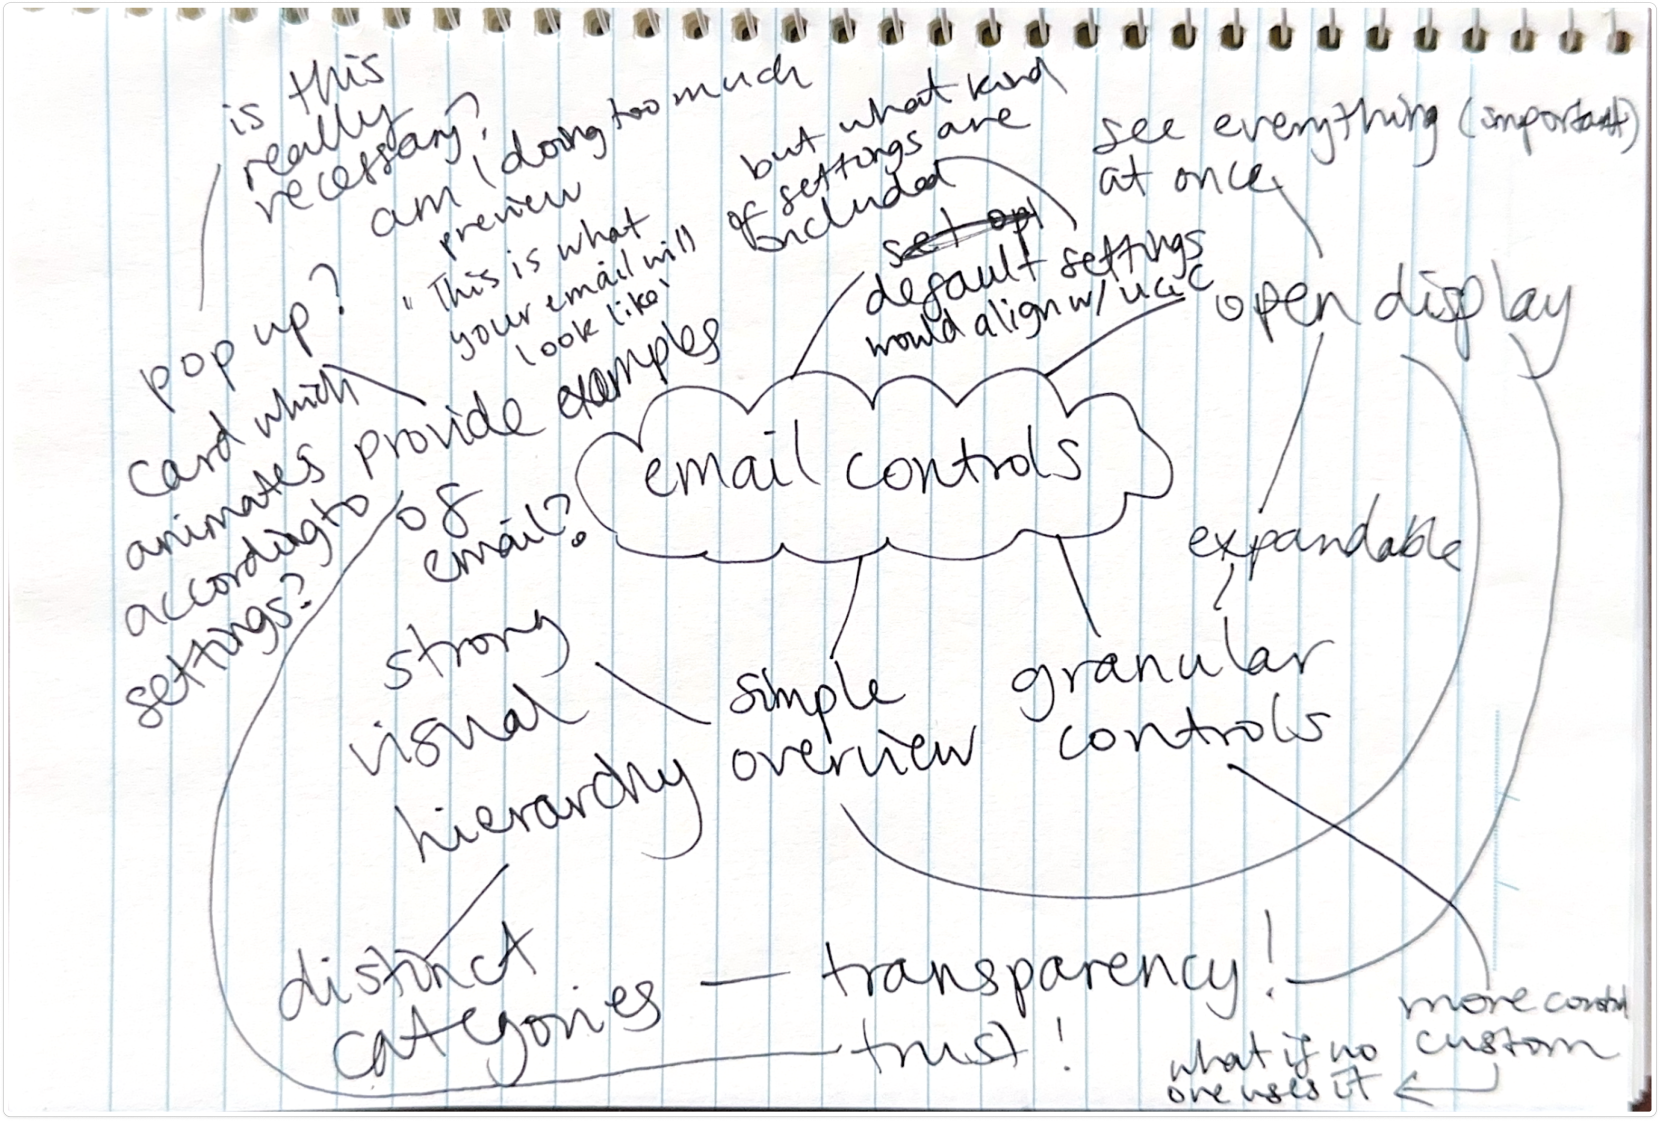 is this
really
necessary?
am I doing too much
preview
"This is what
your email will
look like"
but what kind
of settings are
included
default settings
would align w/
see everything (important)
at once
open display
pop up?
card which
animates
according to
settings?
provide examples
of
email?
email controls
expandable
strong
visual
hierarchy
simple
overview
granular
controls
distinct
categories
transparency!
trust!
more control
custom
what if no
one uses it